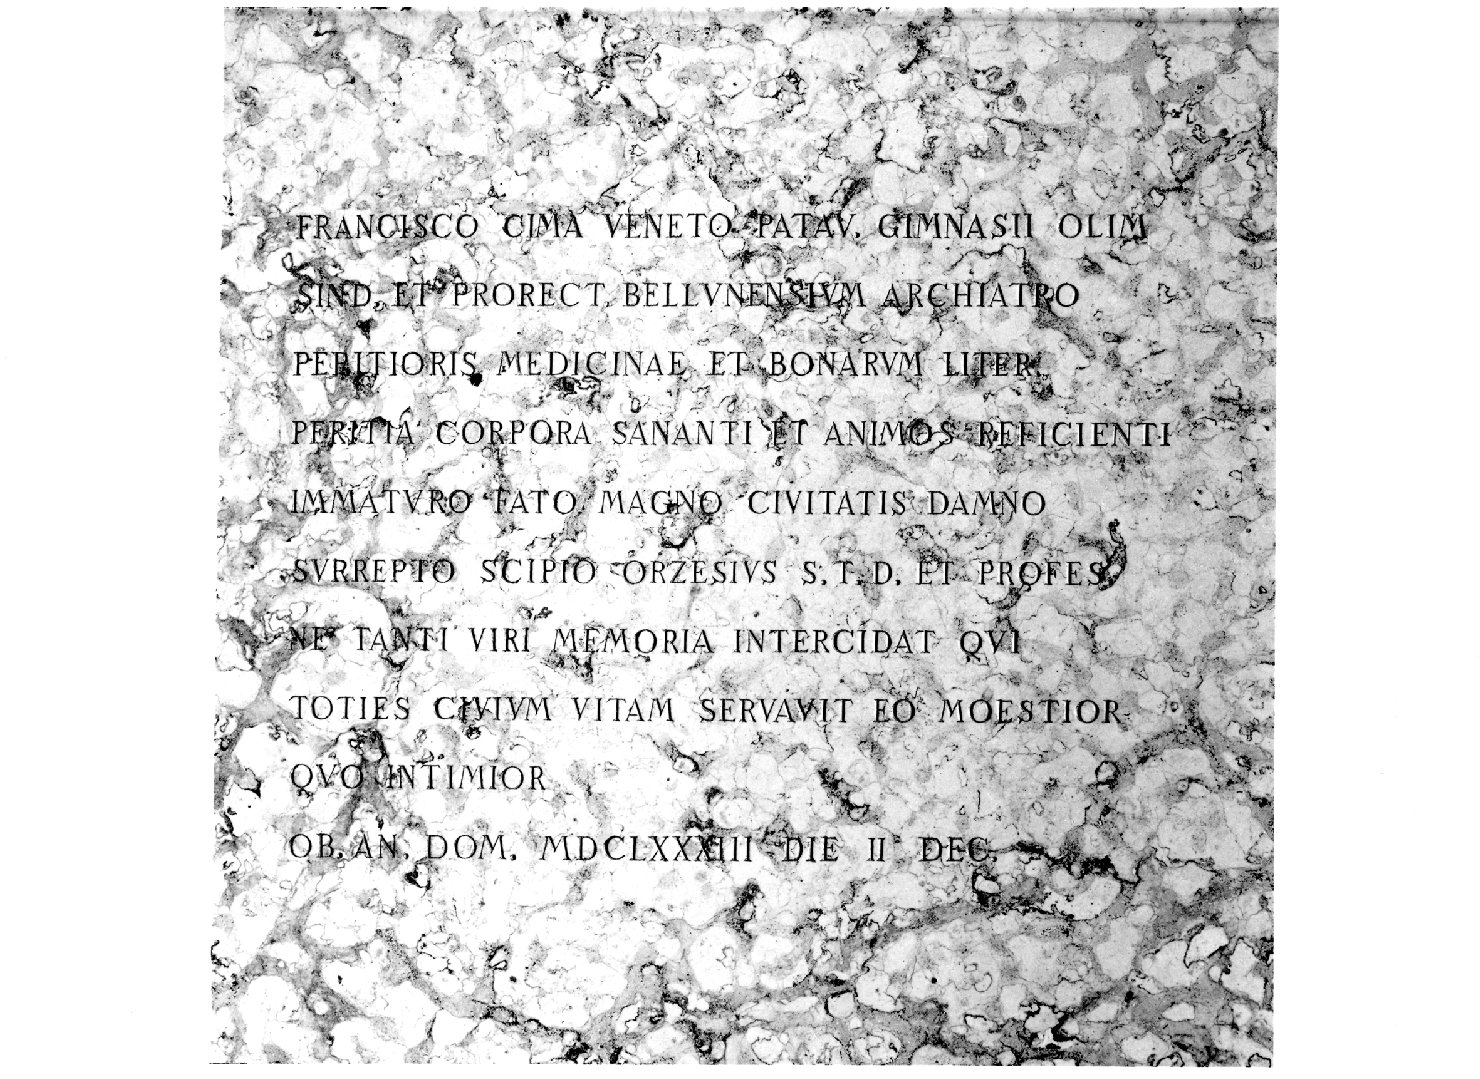 FRANCISCO CIMA VENETO PATAV. GIMNASII OLIM
SIND. ET PRORECT. BELLVNENSIVM ARCHIATRO
PERITIORIS MEDICINAE ET BONARVM LITER.
PERITIA CORPORA SANANTI ET ANIMOS REFICIENTI
IMMATVRO FATO MAGNO CIVITATIS DAMNO
SVRREPTO SCIPIO ORZESIVS S. T. D. ET PROFES.
NE TANTI VIRI MEMORIA INTERCIDAT QVI
TOTIES CIVIVM VITAM SERVAVIT EO MOESTIOR
QVO INTIMIOR
OB. AN. DOM. MDCLXXXIIII DIE II DEC.